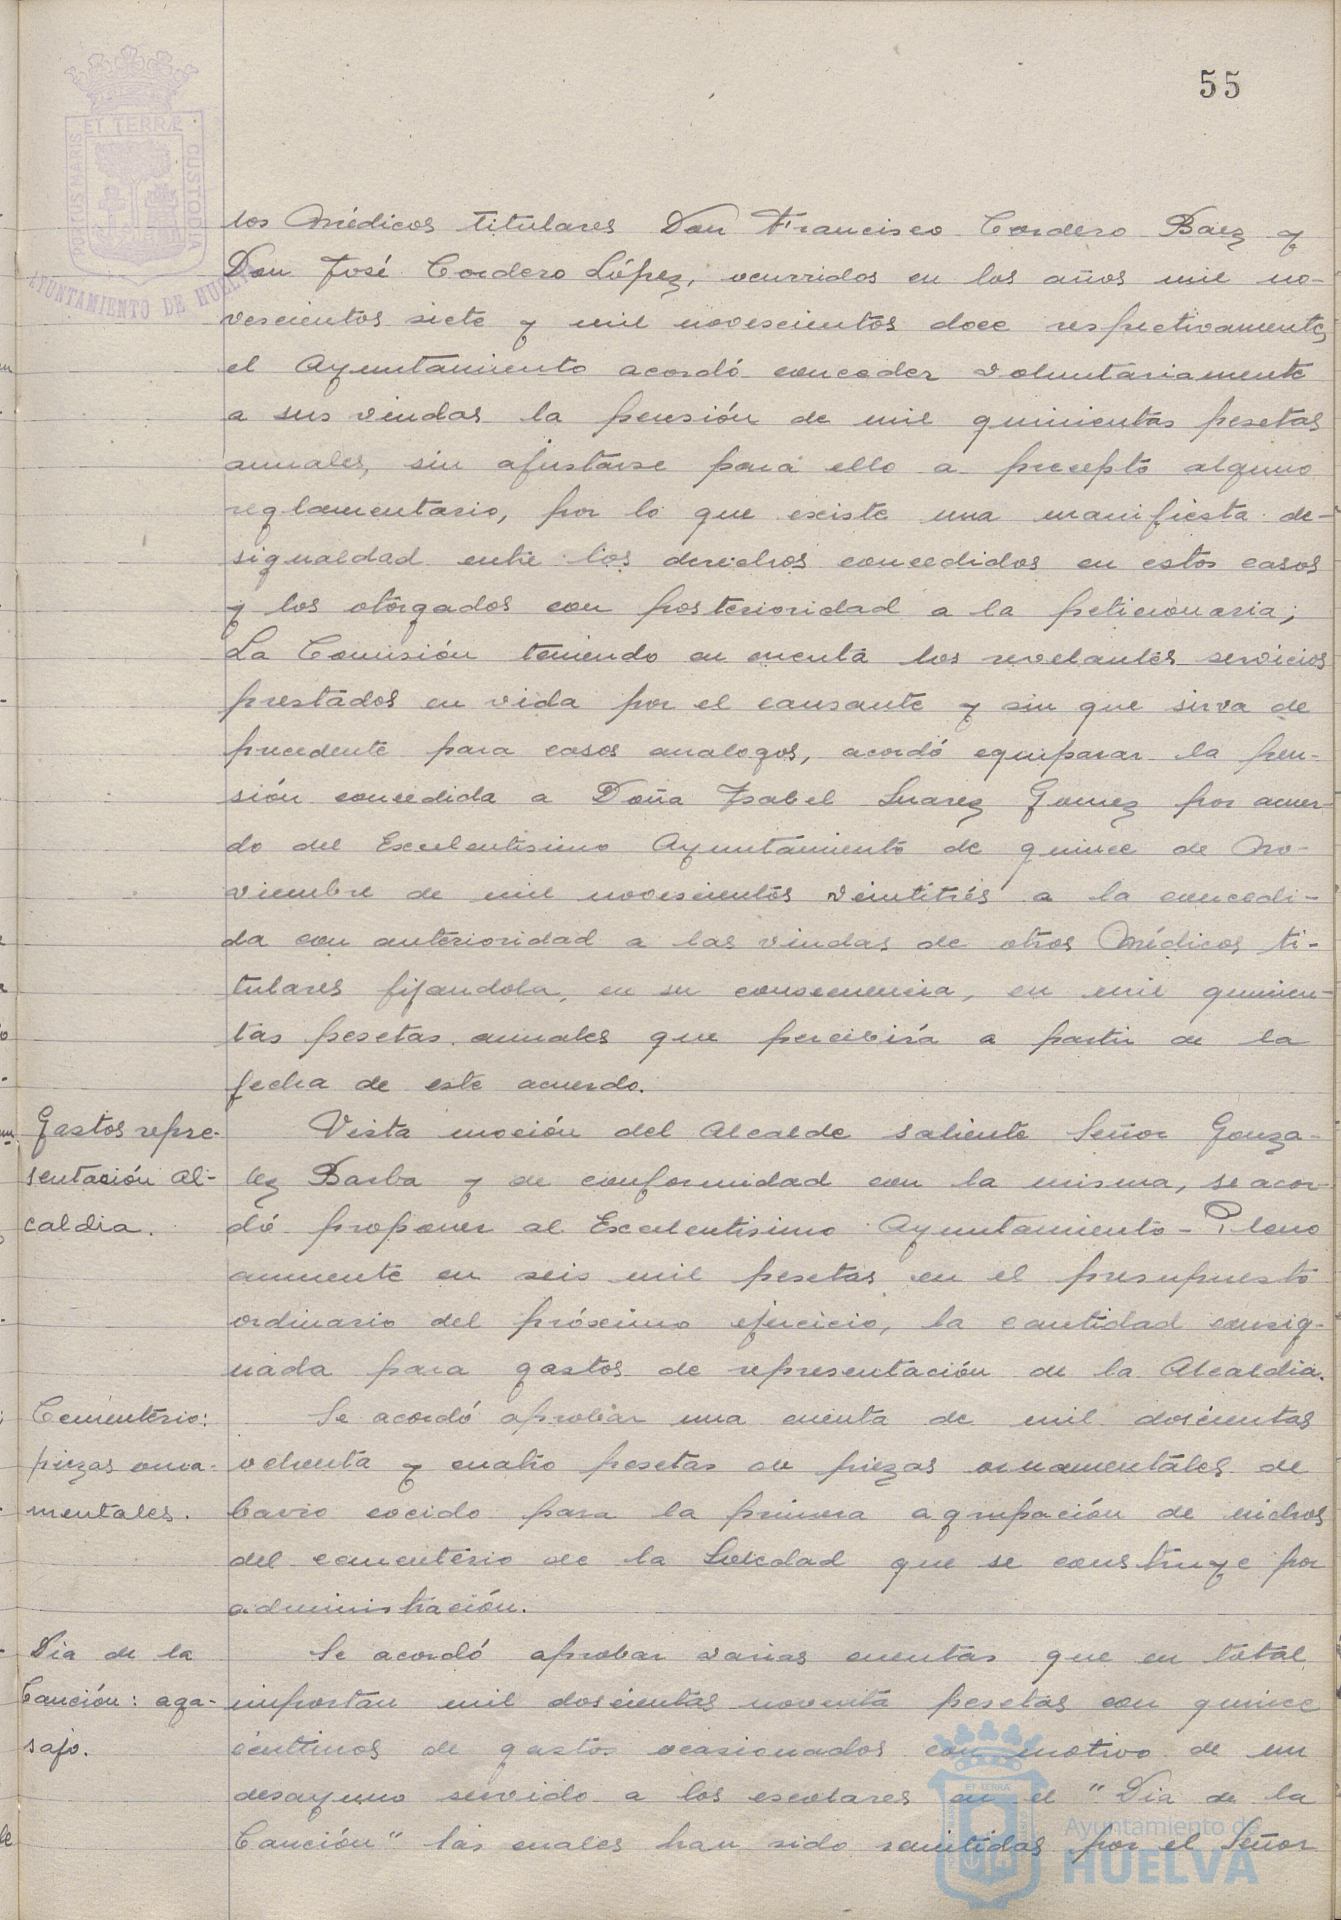 55
PORTUS MARIS
ET TERRÆ
CUSTODIA
AYUNTAMIENTO DE HUELVA
los Médicos titulares Don Francisco Cordero Baez y
Don José Cordero López, ocurridos en los años mil no-
vescientos siete y mil novescientos doce respectivamente,
el Ayuntamiento acordó conceder voluntariamente
a sus viudas la pensión de mil quinientas pesetas
anuales, sin ajustarse para ello a precepto alguno
reglamentario, por lo que existe una manifiesta de-
sigualdad entre los derechos concedidos en estos casos
y los otorgados con posterioridad a la peticionaria;
La Comisión teniendo en cuenta los revelantes servicios
prestados en vida por el causante y sin que sirva de
precedente para casos analogos, acordó equiparar la pen-
sión concedida a Doña Isabel Suarez Gomez por acuer-
do del Excelentisimo Ayuntamiento de quince de No-
viembre de mil novescientos veintitrés a la concedi-
da con anterioridad a las viudas de otros Médicos ti-
tulares fijandola, en su consecuencia, en mil quinien-
tas pesetas anuales que percibirá a partir de la
fecha de este acuerdo.
Gastos repre-
sentación Al-
caldia.
Vista moción del Alcalde saliente Señor Gonza-
lez Barba y de conformidad con la misma, se acor-
dó proponer al Excelentisimo Ayuntamiento-Pleno
aumente en seis mil pesetas en el presupuesto
ordinario del próximo ejercicio, la cantidad consig-
nada para gastos de representación de la Alcaldia.
Cementerio:
piezas orna-
mentales.
Se acordó aprobar una cuenta de mil doscientas
ochenta y cuatro pesetas de piezas ornamentales de
barro cocido para la primera agrupación de nichos
del cementerio de la Soledad que se construye por
administración.
Dia de la
Canción: aga-
sajo.
Se acordó aprobar varias cuentas que en total
importan mil doscientas noventa pesetas con quince
céntimos de gastos ocasionados con motivo de un
desayuno servido a los escolares en el "Dia de la
Canción" las cuales han sido remitidas por el Señor
ET TERRÆ
Ayuntamiento de
HUELVA